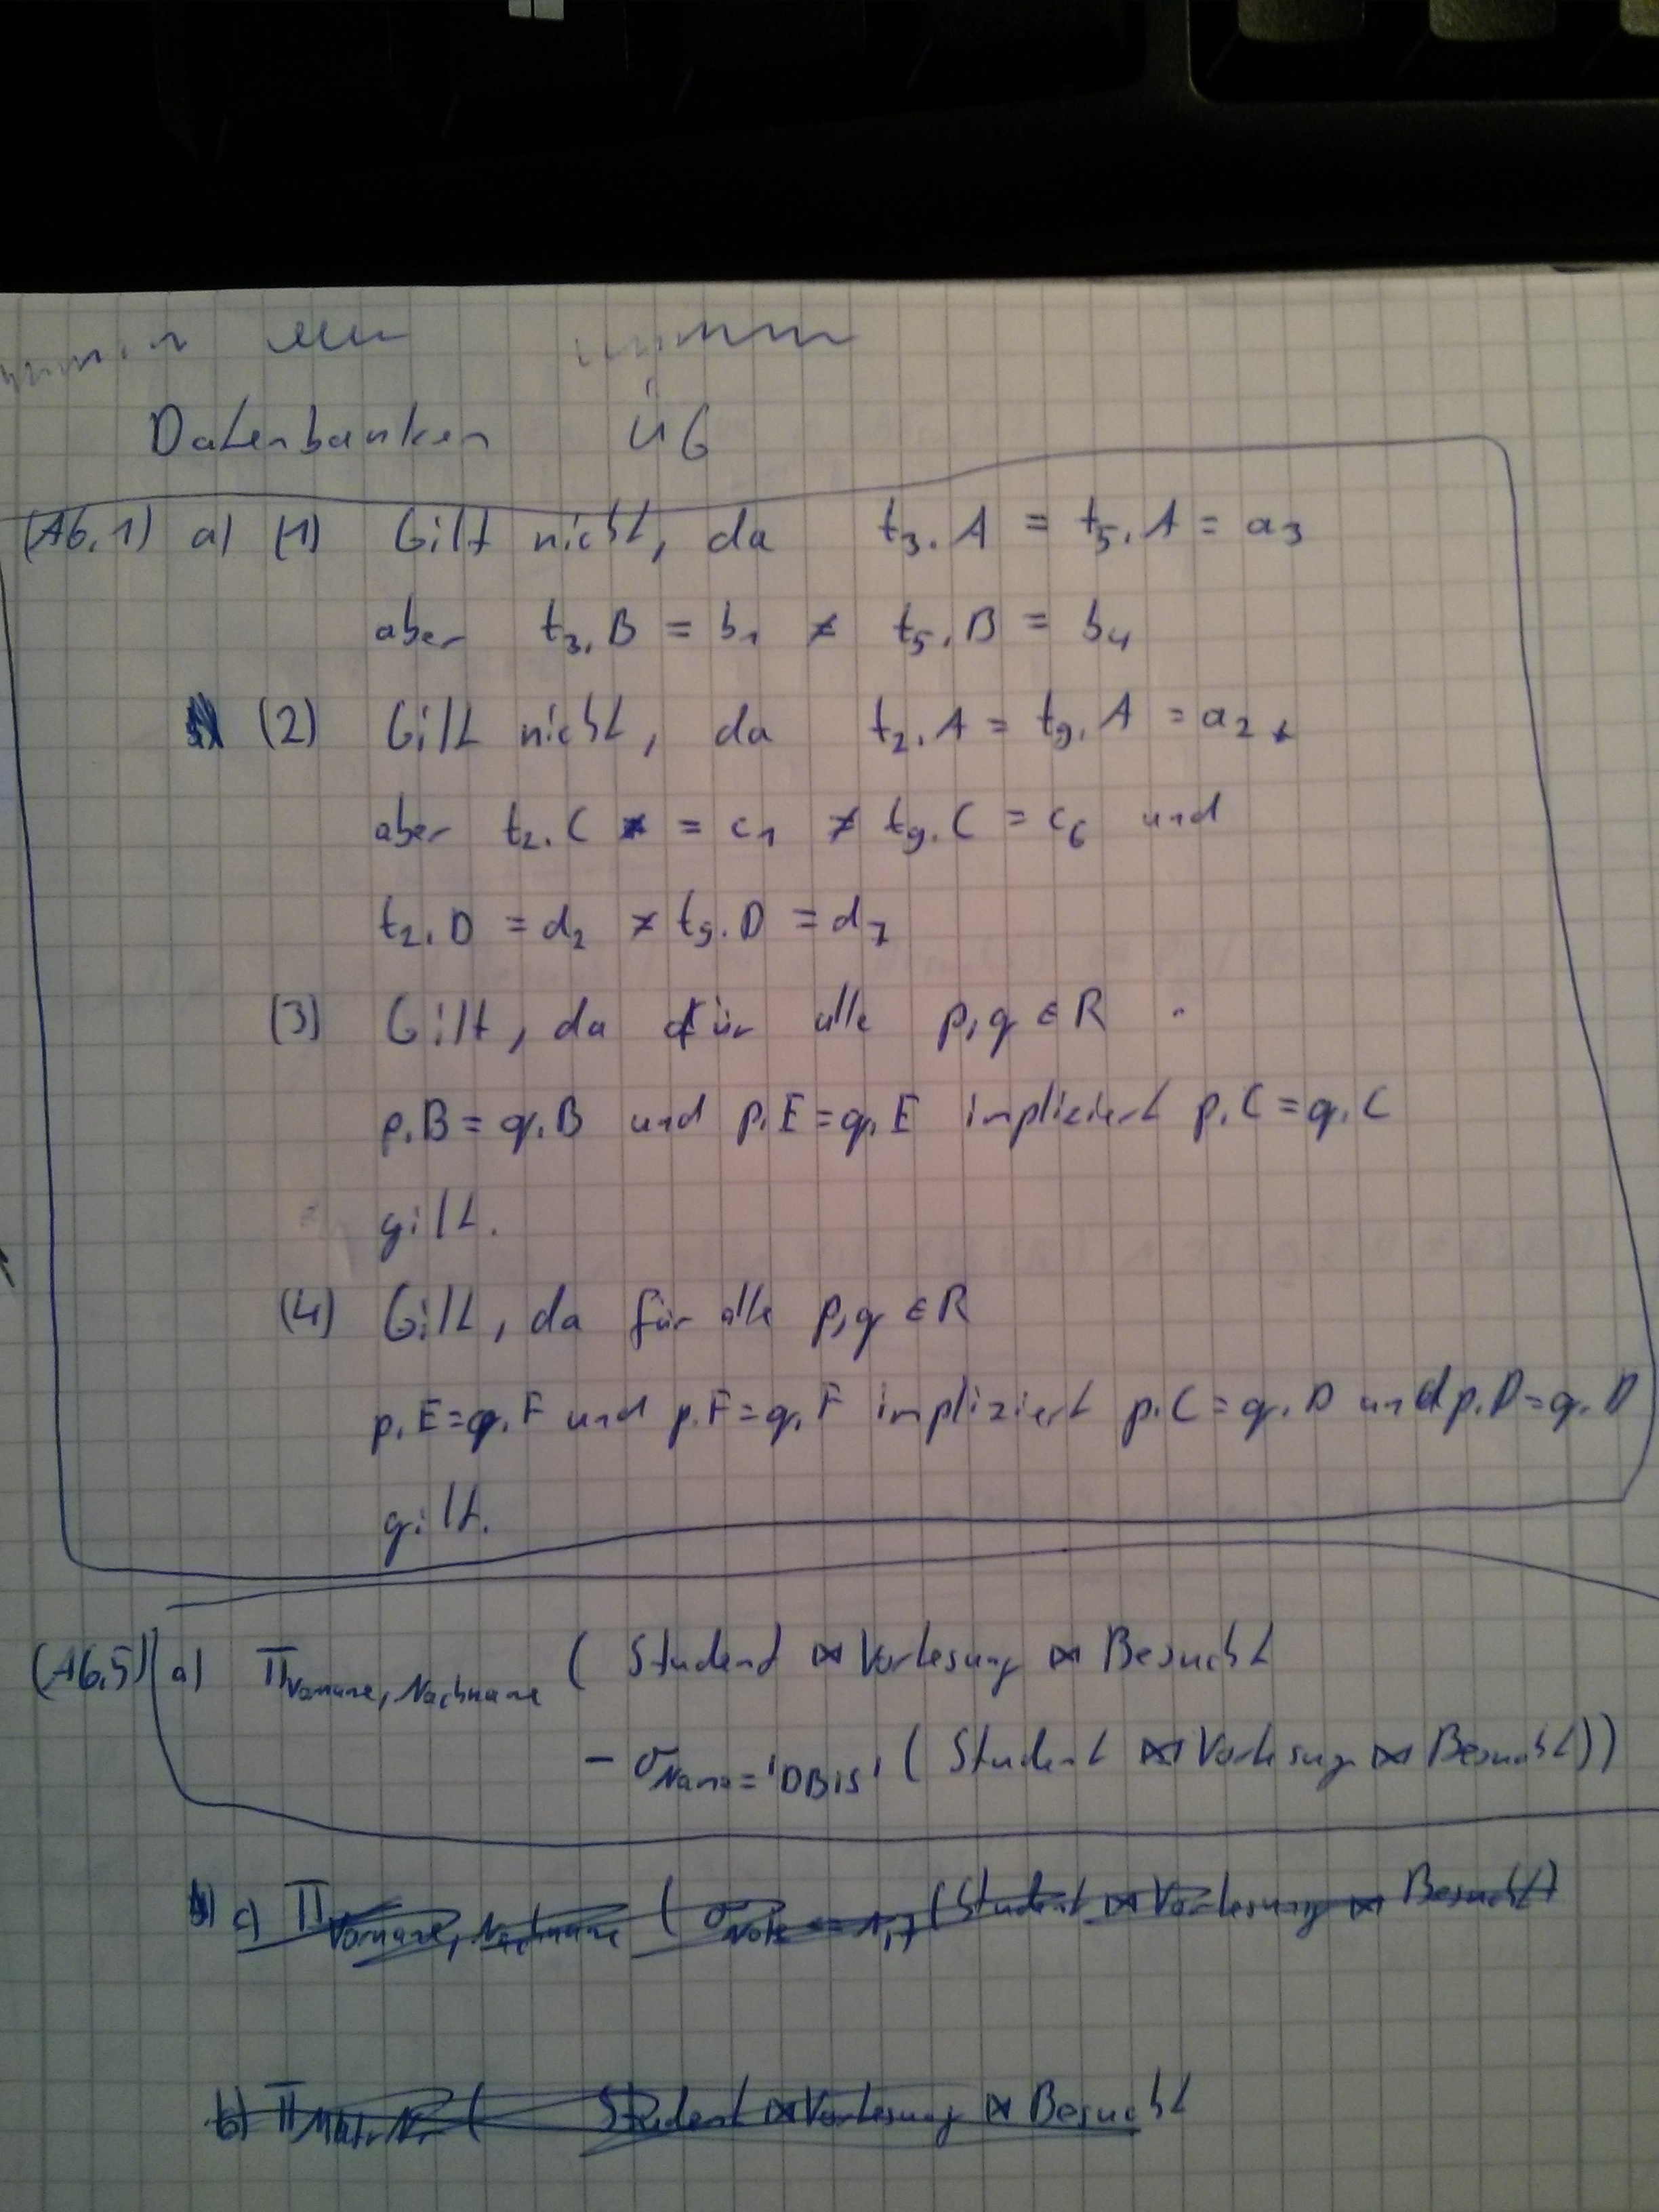 Datenbanken Ü6
(A6.1) a) (1) Gilt nicht, da t₃.A = t₅.A = a₃
aber t₃.B = b₁ ≠ t₅.B = b₄
(2) Gilt nicht, da t₂.A = t₉.A = a₂
aber t₂.C = c₁ ≠ t₉.C = c₆ und
t₂.D = d₂ ≠ t₉.D = d₇
(3) Gilt, da für alle p,q ∈ R
p.B = q.B und p.E = q.E impliziert p.C = q.C
gilt.
(4) Gilt, da für alle p,q ∈ R
p.E=q.F und p.F=q.F impliziert p.C=q.D und p.D=q.D
gilt.
(A6.5) a) π Vorname, Nachname ( Student ⋈ Vorlesung ⋈ Besucht
− σ Name='DBIS' ( Student ⋈ Vorlesung ⋈ Besucht))
c) π Vorname, Nachname ( σ Note <= 1,7 (Student ⋈ Vorlesung ⋈ Besucht)
b) π Mat.Nr ( Student ⋈ Vorlesung ⋈ Besucht